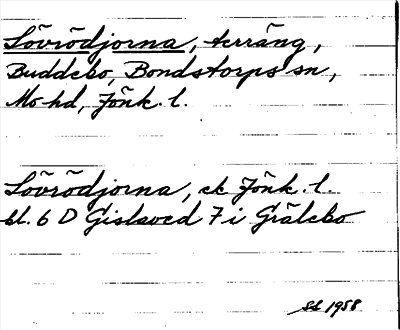 Lövrödjorna, terräng,
Buddebo, Bondstorps sn,
Mo hd, Jönk. l.
Lövrödjorna, ek Jönk. l.
bl. 6 D Gislaved 7 i Grälebo
SL 1958